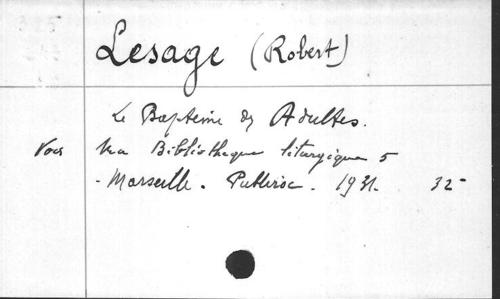 Lesage (Robert)
Le Baptême des Adultes.
Voir Ma Bibliothèque liturgique 5
- Marseille. Publiroc. 1931. 32-